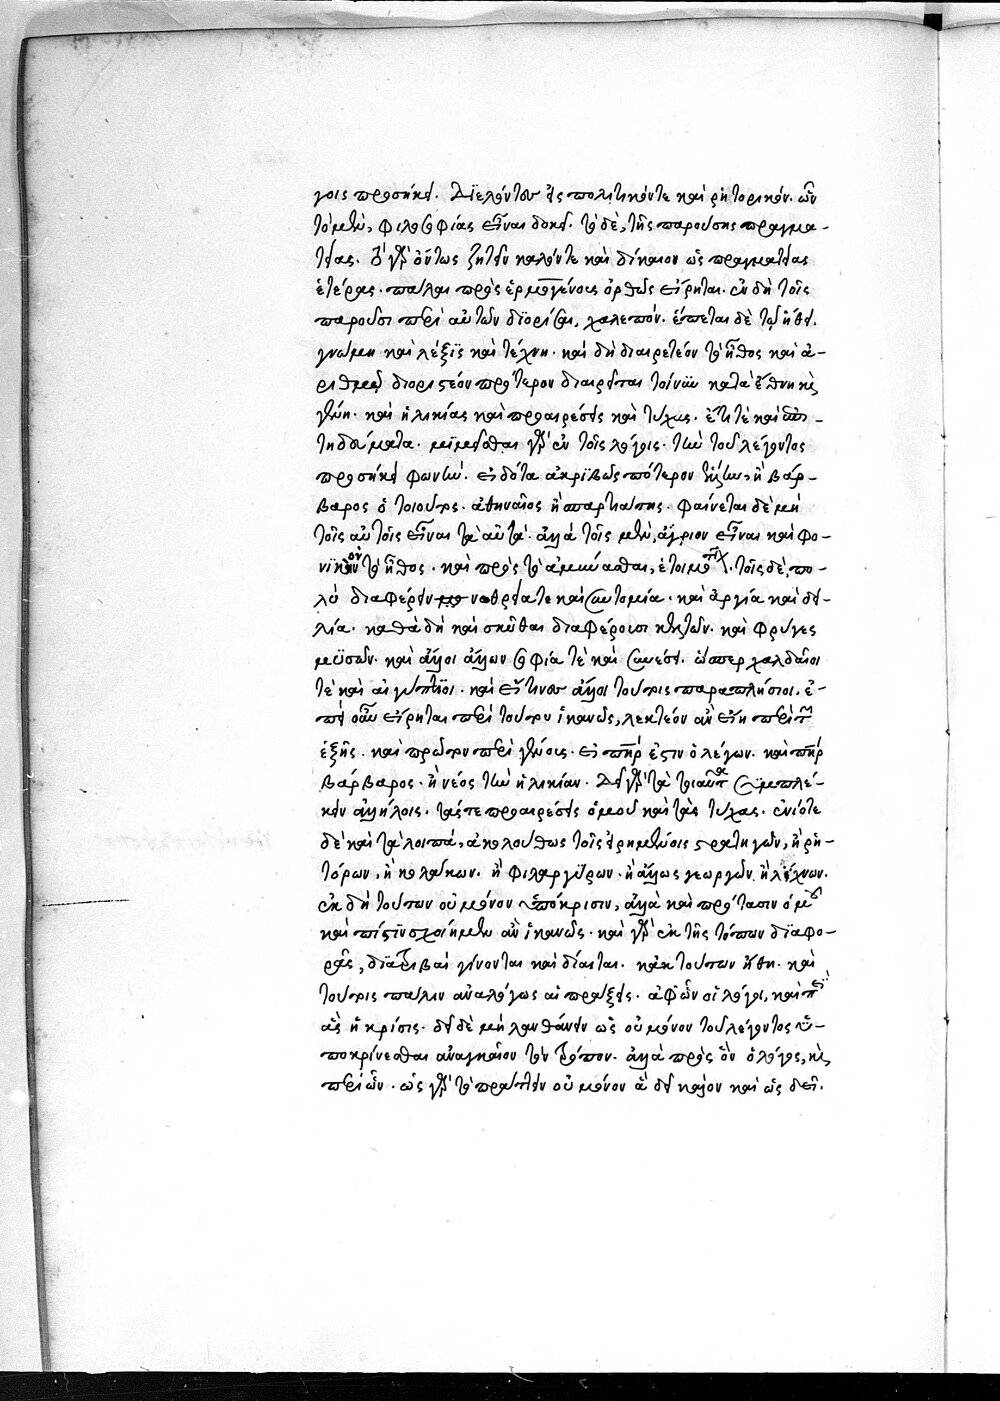 γοις προσήκει. Διελόντων εἰς πολιτικόν τε καὶ ῥητορικόν. ὧν
τὸ μὲν, φιλοσοφίας εἶναι δοκεῖ. τὸ δὲ, τῆς παρούσης πραγμα-
τείας. τὸ γὰρ ὄντως ζητεῖν καλόν τε καὶ δίκαιον ὡς πραγματείας
ἑτέρας. πάλαι πρὸς ἑρμογένους ὀρθῶς εἴρηται. ἐν δὴ τοῖς
παροῦσι περὶ αὐτῶν διορίσαι, χαλεπόν. ἕπεται δὲ τῷ ἤθει.
γνώμη καὶ λέξις καὶ τέχνη. καὶ δὴ διαιρετέον τὸ ἦθος καὶ ἀ-
ριθμῷ διοριστέον πρότερον διαιρεῖται τοίνυν κατὰ ἔθνη καὶ
γένη. καὶ ἡλικίας καὶ προαιρέσεις καὶ τύχας. ἔτι τὲ καὶ ἐπι-
τηδεύματα. μιμεῖσθαι γὰρ ἐν τοῖς λόγοις. τὴν τοῦ λέγοντος
προσήκει φωνὴν. εἰδότα ἀκριβῶς πότερον ἕλλην, ἢ βάρ-
βαρος ὁ τοιοῦτος. ἀθηναῖος ἢ σπαρτιάτης. φαίνεται δὲ μὴ
τοῖς αὐτοῖς εἶναι τὰ αὐτὰ. ἀλλὰ τοῖς μὲν, ἄγριον εἶναι καὶ φο-
νικὸν τὸ ἦθος. καὶ πρὸς τὸ ἀμύνασθαι, ἑτοιμότατον. τοῖς δὲ, πο-
λὺ διαφέρειν νωθρεία τε καὶ συντομία. καὶ ἀργία καὶ δει-
λία. καθὰ δὴ καὶ σκύθαι διαφέρουσι κελτῶν. καὶ φρύγες
μυσῶν. καὶ ἄλλοι ἄλλων σοφία τὲ καὶ συνέσει. ὥσπερ χαλδαῖοι
τὲ καὶ αἰγύπτιοι. καὶ εἴ τινες ἄλλοι τούτοις παραπλήσιοι. ἐ-
πεὶ οὖν εἴρηται περὶ τούτου ἱκανῶς, λεκτέον ἂν εἴη περὶ τῶν
ἑξῆς. καὶ πρῶτον περὶ γένους. εἰ πατήρ ἐστιν ὁ λέγων. καὶ πατὴρ
βάρβαρος. ἢ νέος τὴν ἡλικίαν. Δεῖ γὰρ τὰ τοιαῦτα συμπλέ-
κειν ἀλλήλοις. τάς τε προαιρέσεις ὁμοῦ καὶ τὰς τύχας. ἐνίοτε
δὲ καὶ τὰ λοιπά, ἀκολούθως τοῖς εἰρημένοις στρατηγῶν, ἢ ῥη-
τόρων, ἢ κολάκων. ἢ φιλαργύρων. ἢ ἄλλως γεωργῶν ἢ λίχνων.
ἐκ δὴ τούτων οὐ μόνον ὑπόκρισιν, ἀλλὰ καὶ πρότασιν ὁμοῦ
καὶ πίστιν σχοίημεν ἂν ἱκανῶς. καὶ γὰρ ἐκ τῆς τόπων διαφο-
ρᾶς, διατριβαὶ γίνονται καὶ δίαιται. κἀκ τούτων ἤθη. καὶ
τούτοις πάλιν ἀναλόγως αἱ πράξεις. ἀφ' ὧν οἱ λόγοι, καὶ περὶ
ἃς ἡ κρίσις. δεῖ δὲ μὴ λανθάνειν ὡς οὐ μόνον τοῦ λέγοντος ὑ-
ποκρίνεσθαι ἀναγκαῖον τὸν τρόπον. ἀλλὰ πρὸς ὃν ὁ λόγος, καὶ
περὶ ὧν. ὡς γὰρ τὸ πράττειν οὐ μόνον ἃ δεῖ καὶ ὃν καὶ ὡς δεῖ.